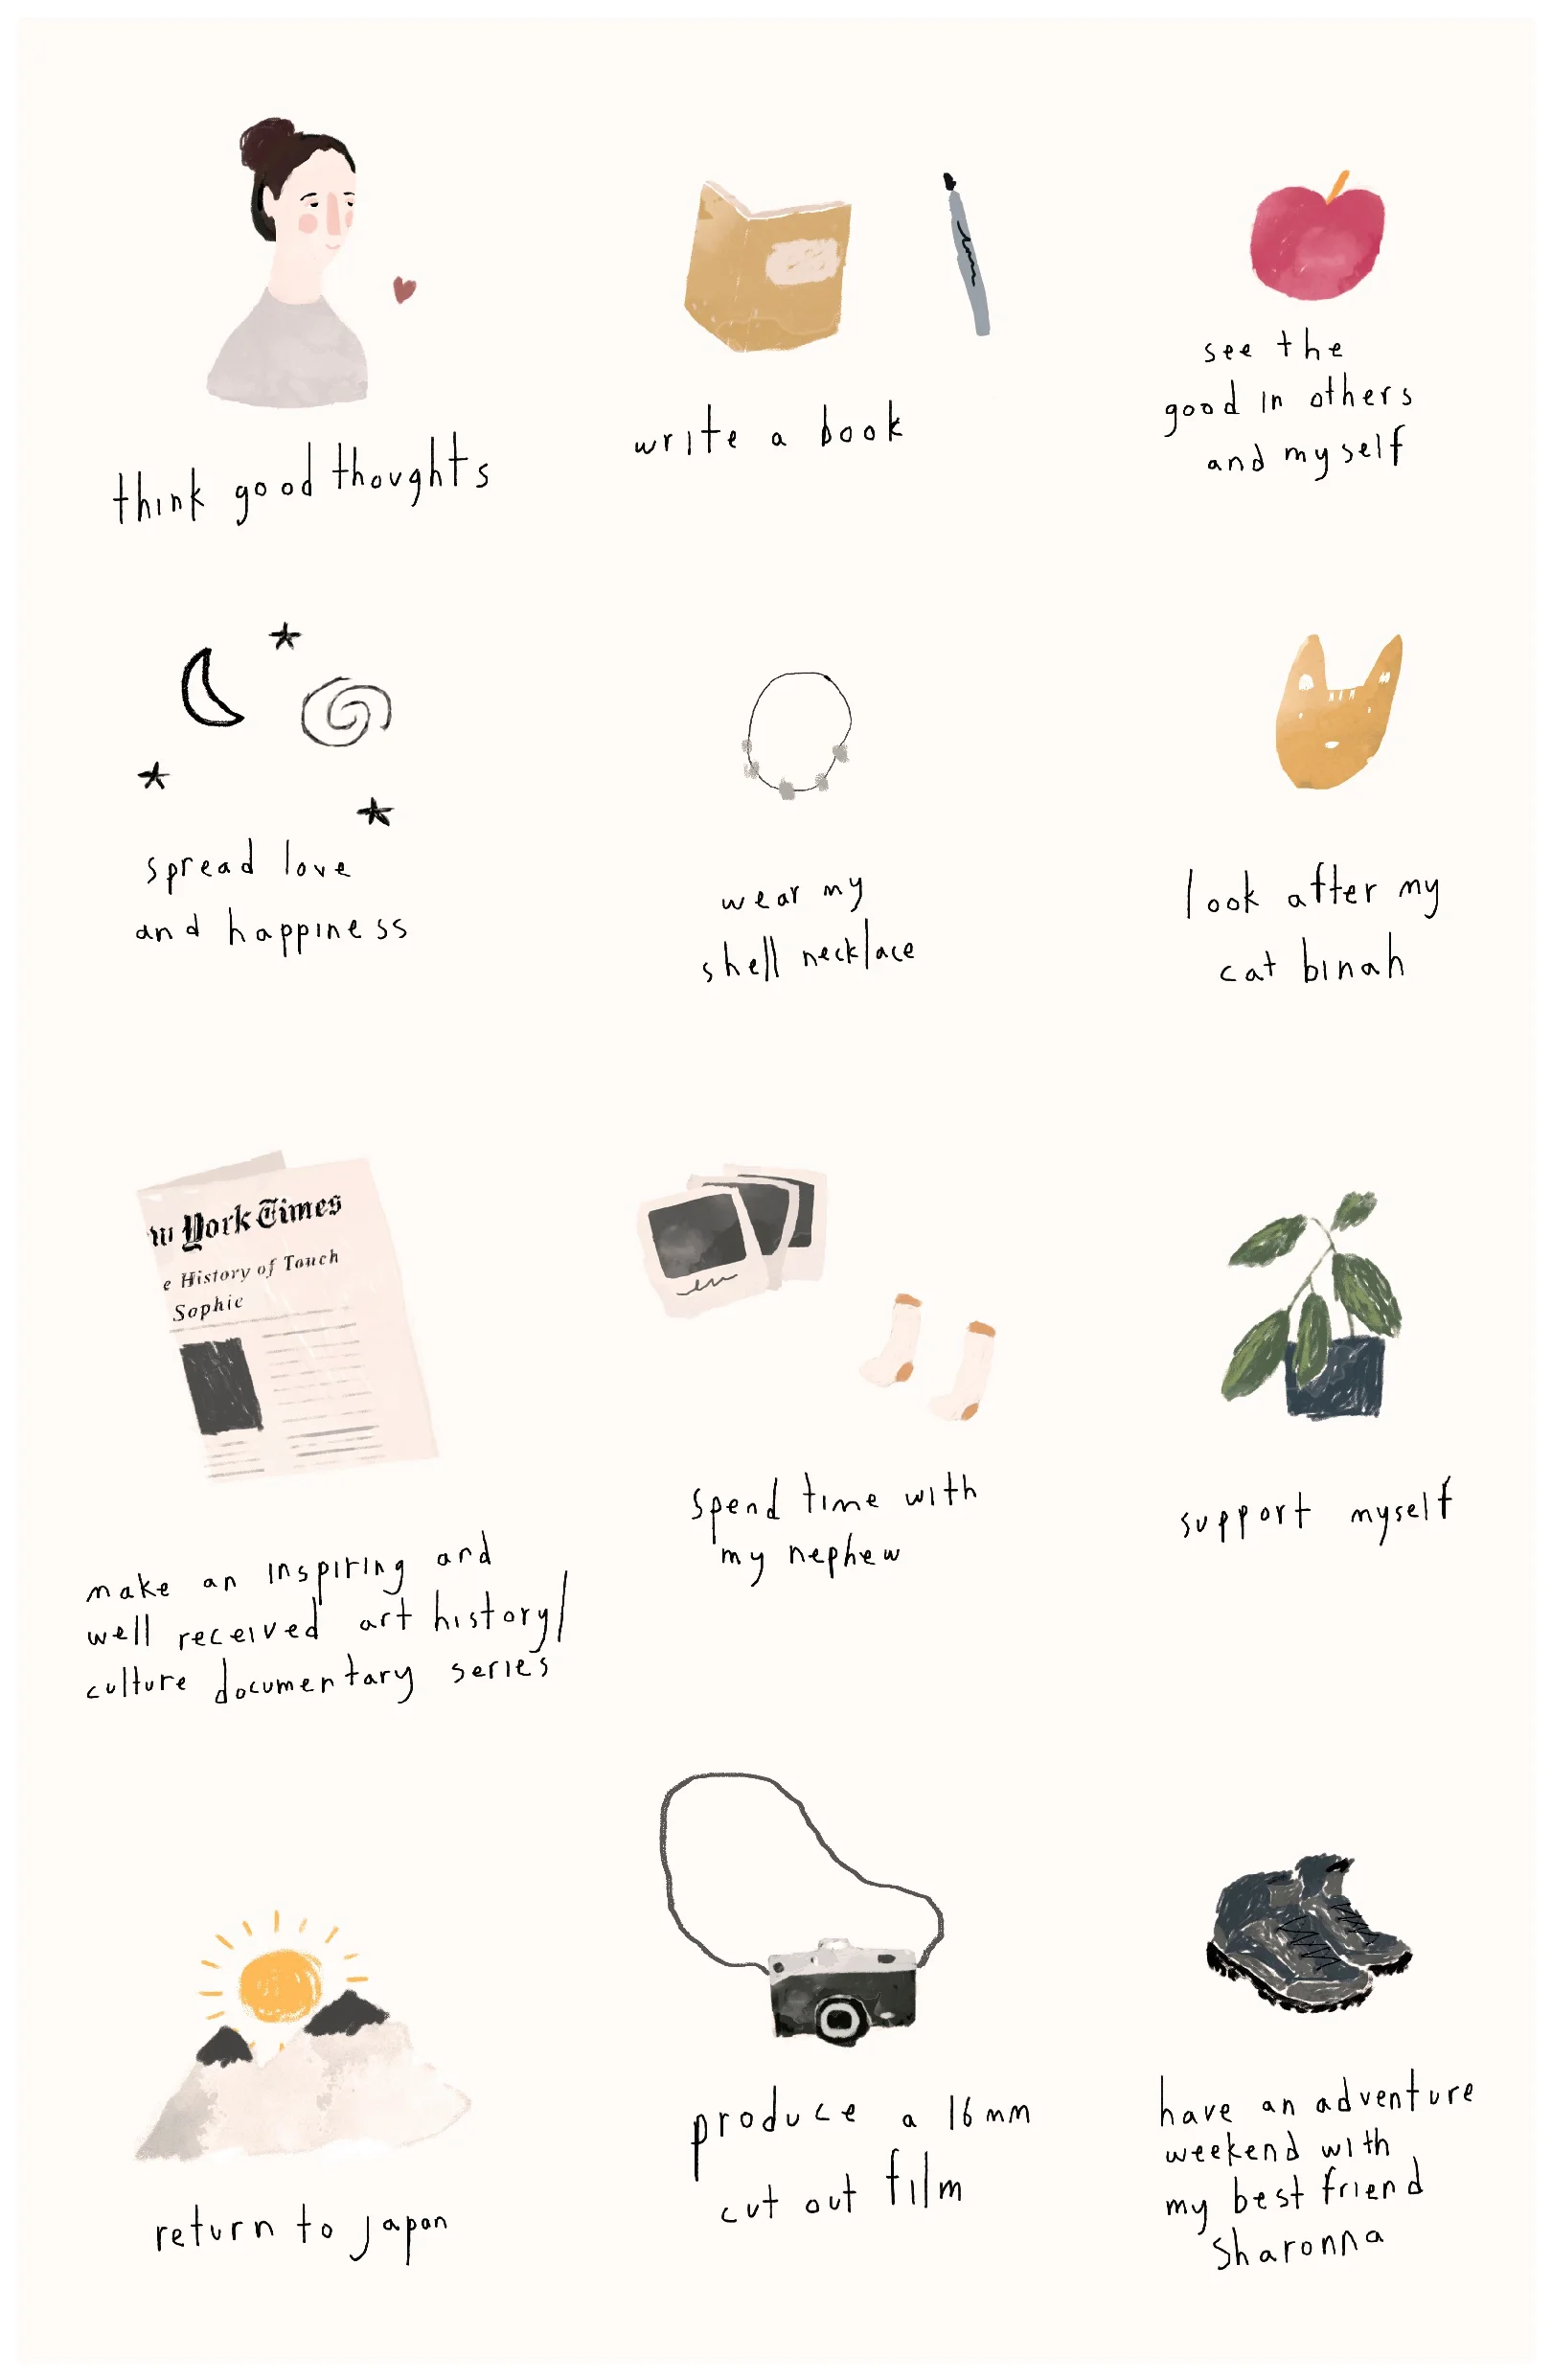 think good thoughts
write a book
see the
good in others
and myself
spread love
and happiness
wear my
shell necklace
look after my
cat binah
w York Times
e History of Touch
Sophie
make an inspiring and
well received art history/
culture documentary series
spend time with
my nephew
support myself
return to japan
produce a 16mm
cut out film
have an adventure
weekend with
my best friend
Sharonna